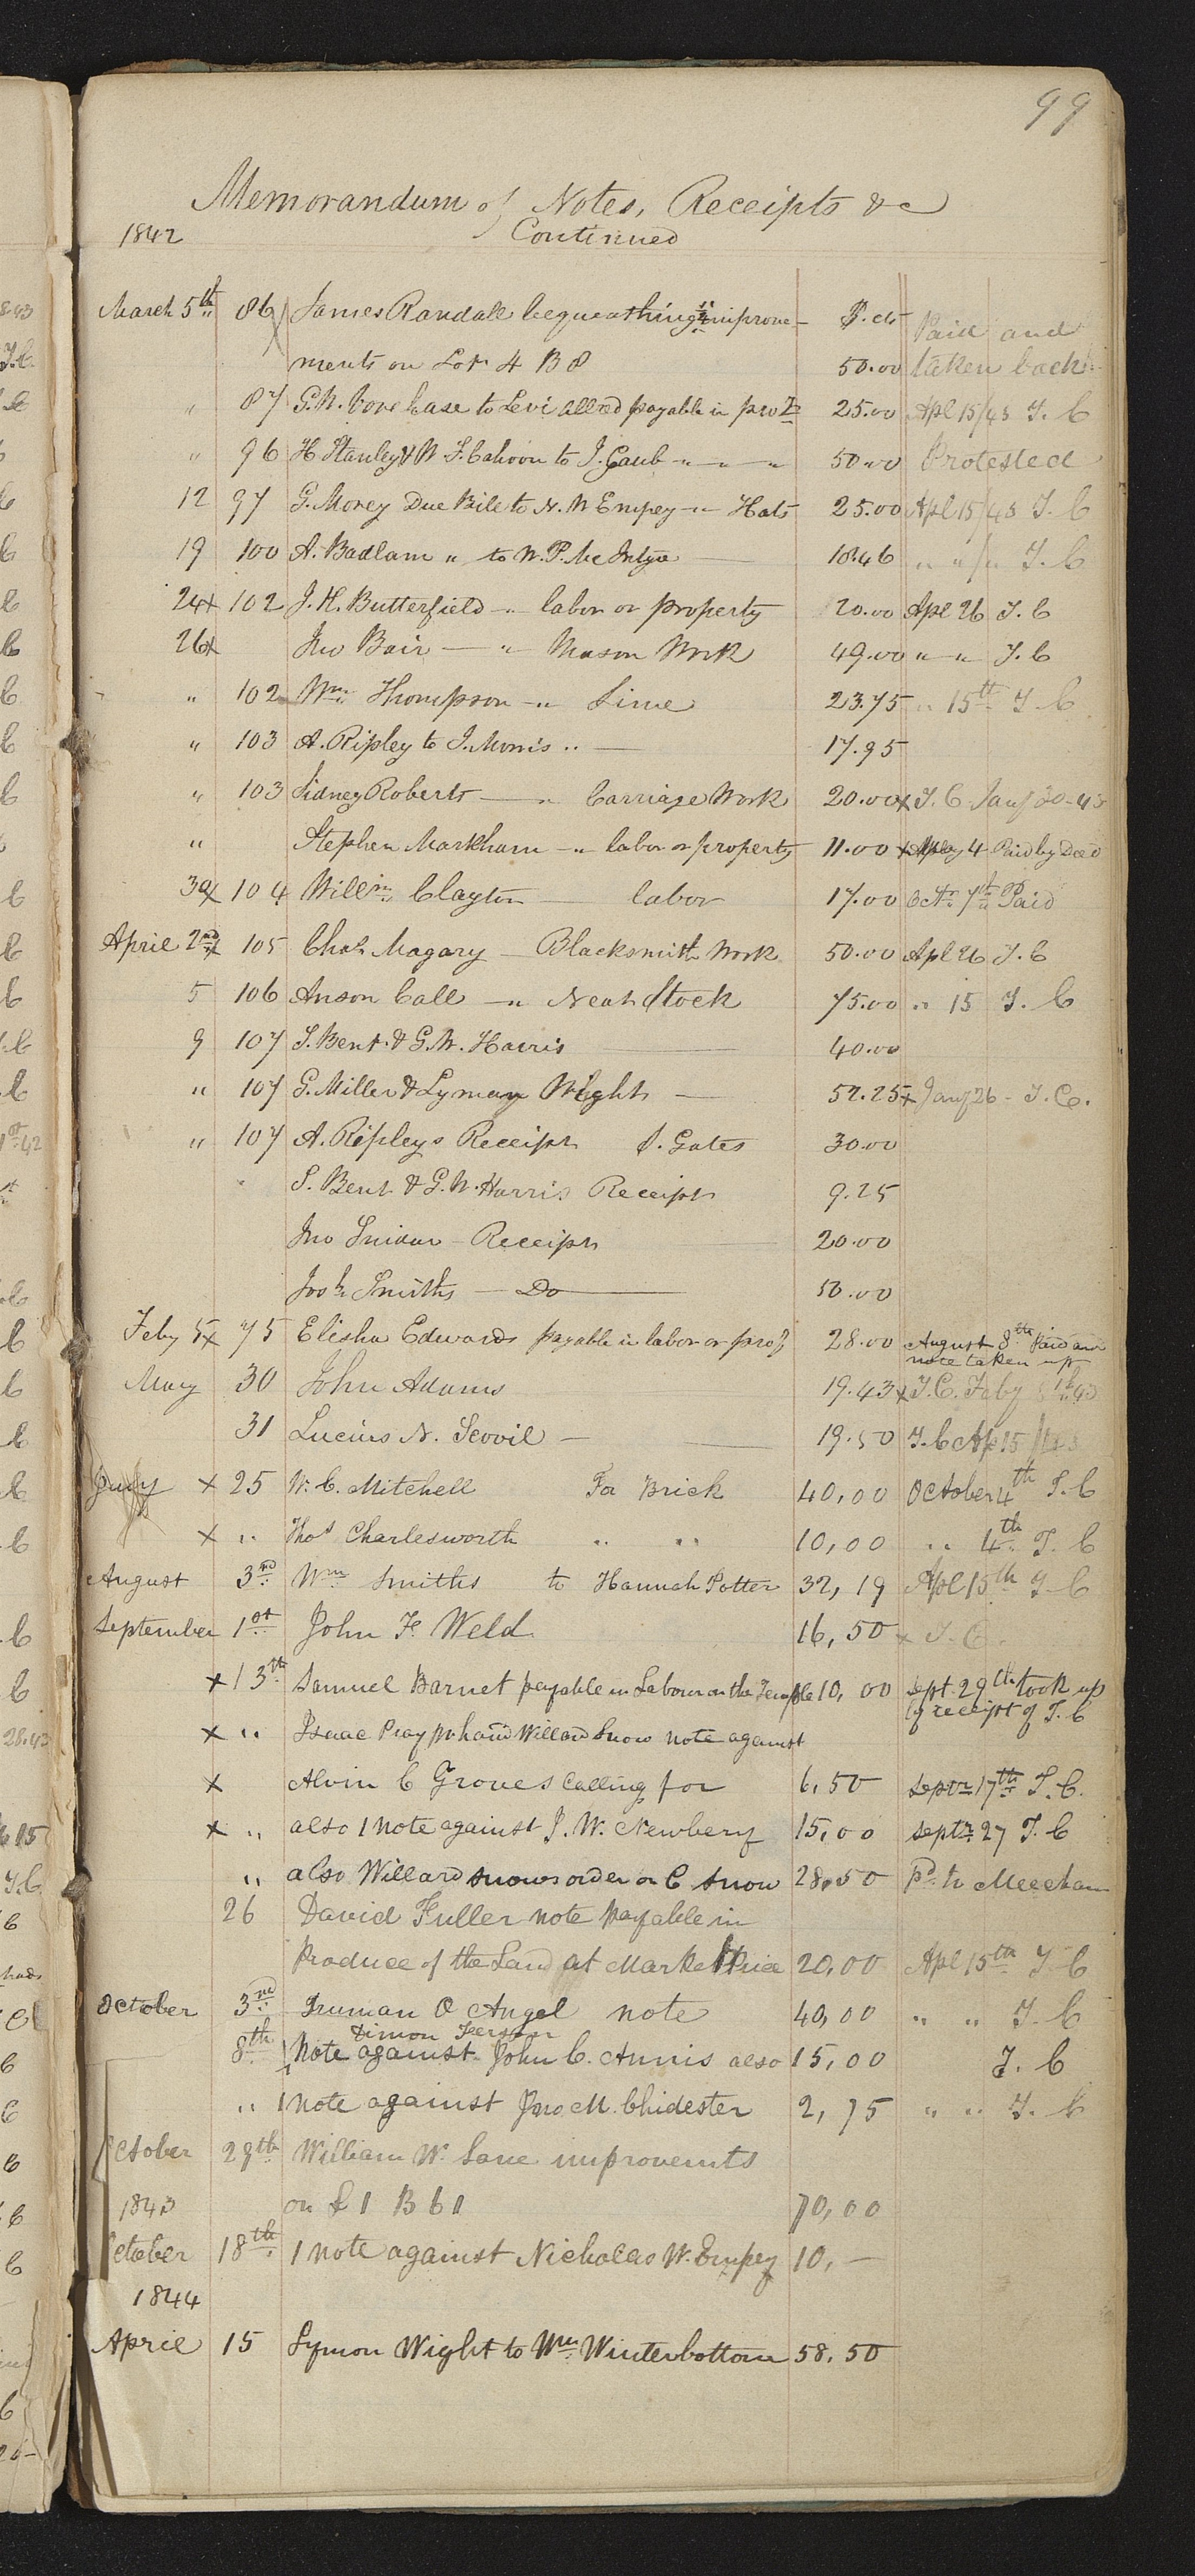 99
Memorandum of Notes, Receipts &c
1842 Continued
March 5th 86 James Randall bequeathing ½ improve- $. cts Paid and
ments on Lot 4 B 8 50.00 taken back
" 87 G. W. to Levi Allred payable in pro 25.00 Apl 15/43 T. C
" 96 H Stanley & W F. Cahoon to J. Gaub " " " 50.00 Protested
12 97 G. Morey Due Bill to N. W Empey " Hats 25.00 Apl 15/43 T. C
19 100 A. Badlam " to W. P. Mc Intyre 10.46 " " / " T. C
24x 102 J. H. Butterfield " labor or property 20.00 Apl 26 T. C
26x Jno Bair — " Mason Work 49.00 " " T. C
" 102 Wm Thompson " Lime 23.75 " 15th T. C
" 103 A. Ripley to J. Morris " — 17.95
" 103 Sidney Roberts — " Carriage Work 20.00 x T. C. Jany 30-43
" Stephen Markham " labor or property 11.00 x May 4 Paid by Deed
30x 104 Willm Clayton — labor 17.00 Oct 7th Paid
April 2nd x 105 Chas Magary — Blacksmith Work 50.00 Apl 26 T. C
5 106 Anson Call " Neat Stock 75.00 " 15 T. C
9 107 S. Bent & G. W. Harris 40.00
" 107 G. Miller & Lyman Wight — 52.25 x Jany 26 - T. C.
" 107 A. Ripleys Receipt S. Gates 30.00
S. Bent & G. W. Harris Receipt 9.25
Jno Snider — Receipt 20.00
Josh Smiths — Do 50.00
Feby 5x 75 Elisha Edwards payable in labor or prop 28.00 August 8th paid and
note taken up
May 30 John Adams 19.43 x T. C. Feby 1st 43
31 Lucius N. Scovil — 19.50 T. C Ap 15/43
July x 25 W. C. Mitchell For Brick 40,00 October 4th T. C
x " Thos Charlesworth " " 10,00 " 4th T. C
August 3rd Wm Smiths to Hannah Potter 32,19 Apl 15th T C
September 1st John F. Weld 16,50 x T. C.
x 13th Samuel Barnet payable in Labour on the Temple 10,00 Sept 29th took up
by receipt of T. C
x " Isaac Pray pr hand Willard Snow note against
x Alvin C Groves Calling for 6,50 Septr 17th T. C.
x " also 1 note against J. W. Newbery 15,00 Septr 27 T. C
" also Willard Snows order on C Snow 28,50 Pd to Meecham
26 David Fuller note payable in
Produce of the Land at Market Price 20,00 Apl 15th T C
October 3rd Truman O Angel note 40,00 " " T. C
Simon
8th 1 Note against John C. Annis also 15,00 T. C
" 1 note against Jno. M. Chidester 2,75 " " T. C
October 28th William W. Lane improvemts
1843 on L 1 B 61 70,00
October 18th 1 note against Nicholas W. Empey 10, —
1844
April 15 Lymon Wight to Wm Winterbottom 58,50